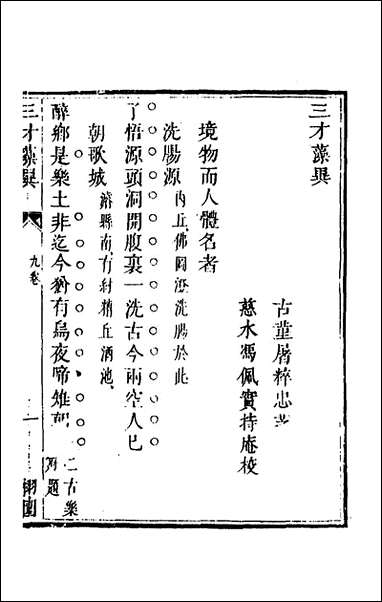 三才藻異
古堇屠粹忠著
慈水馮佩實持庵校
境物而人體名者
洗腸源 內丘佛圖澄洗腸於此
了悟源頭洞開腹裏一洗古今兩空人己
朝歌城 濬縣南有紂糟丘酒池
醉鄉是樂土非迄今猶有烏夜啼雉朝 二古樂府題
三才藻異 九卷 栩園